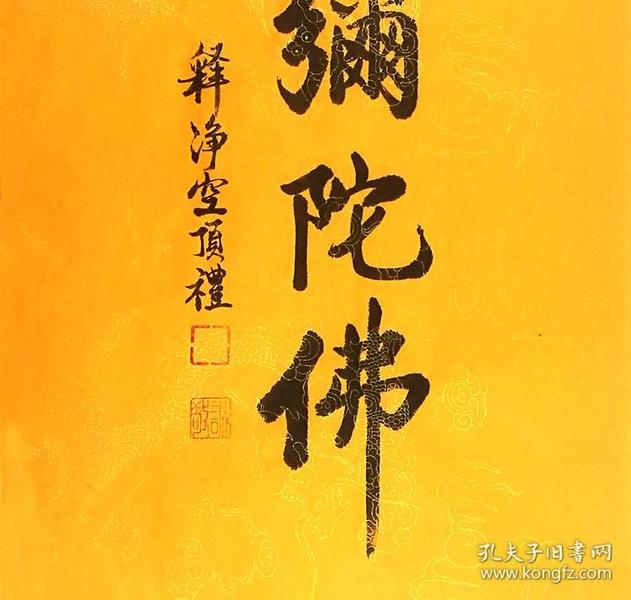 彌陀佛
释净空頂禮
孔夫子旧書网
www.kongfz.com